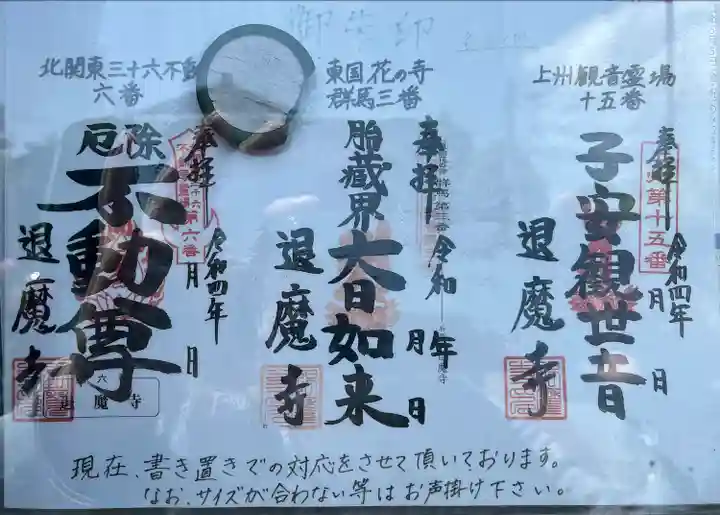 御朱印
上州観音霊場
十五番
奉拝
第十五番
令和四年 月 日
子安観世音
退魔寺
東国花の寺
群馬三番
奉拝
令和 年 月 日
胎蔵界大日如来
退魔寺
北関東三十六不動
六番
奉拝
第六番
令和四年 月 日
厄除
不動尊
退魔寺
現在、書き置きでの対応をさせて頂いております。
なお、サイズが合わない等はお声掛け下さい。